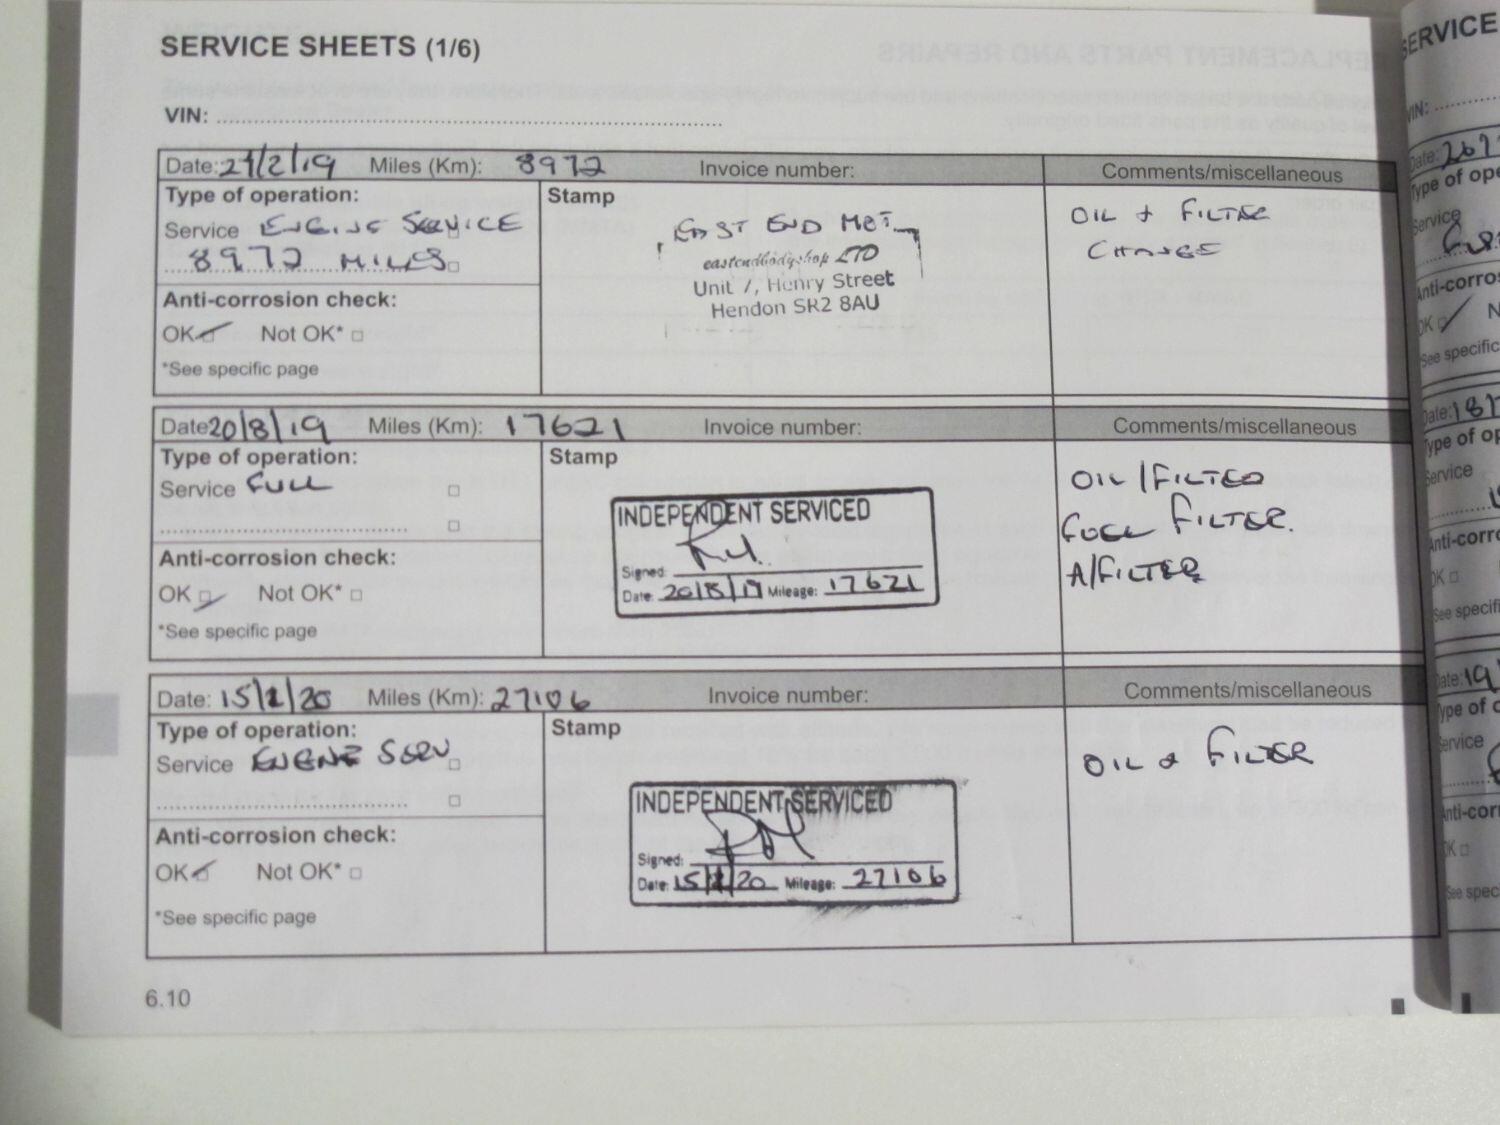 SERVICE SHEETS (1/6)
VIN:
Date: 21/2/19 Miles (Km): 8972 Invoice number: Comments/miscellaneous
Type of operation: Stamp
Service ENGINE SERVICE
8972 MILES
EAST END MET
eastendbodyshop LTD
Unit 7, Henry Street
Hendon SR2 8AU
OIL & FILTER
CHANGE
Anti-corrosion check:
OK Not OK*
*See specific page
Date 20/8/19 Miles (Km): 17621 Invoice number: Comments/miscellaneous
Type of operation: Stamp
Service FULL
INDEPENDENT SERVICED
Signed:
Date: 20/8/19 Mileage: 17621
OIL/FILTER
FUEL FILTER.
A/FILTER
Anti-corrosion check:
OK Not OK*
*See specific page
Date: 15/2/20 Miles (Km): 27106 Invoice number: Comments/miscellaneous
Type of operation: Stamp
Service ENGINE SERV
INDEPENDENT SERVICED
Signed:
Date: 15/2/20 Mileage: 27106
OIL & FILTER
Anti-corrosion check:
OK Not OK*
*See specific page
6.10
SERVICE
VIN:
Date:
Type of ope
Service
Anti-corros
OK N
See specific
Date: 18/
Type of op
Service
Anti-corro
OK
See specifi
Date: 19
Type of o
Service
Anti-cor
OK
See spec